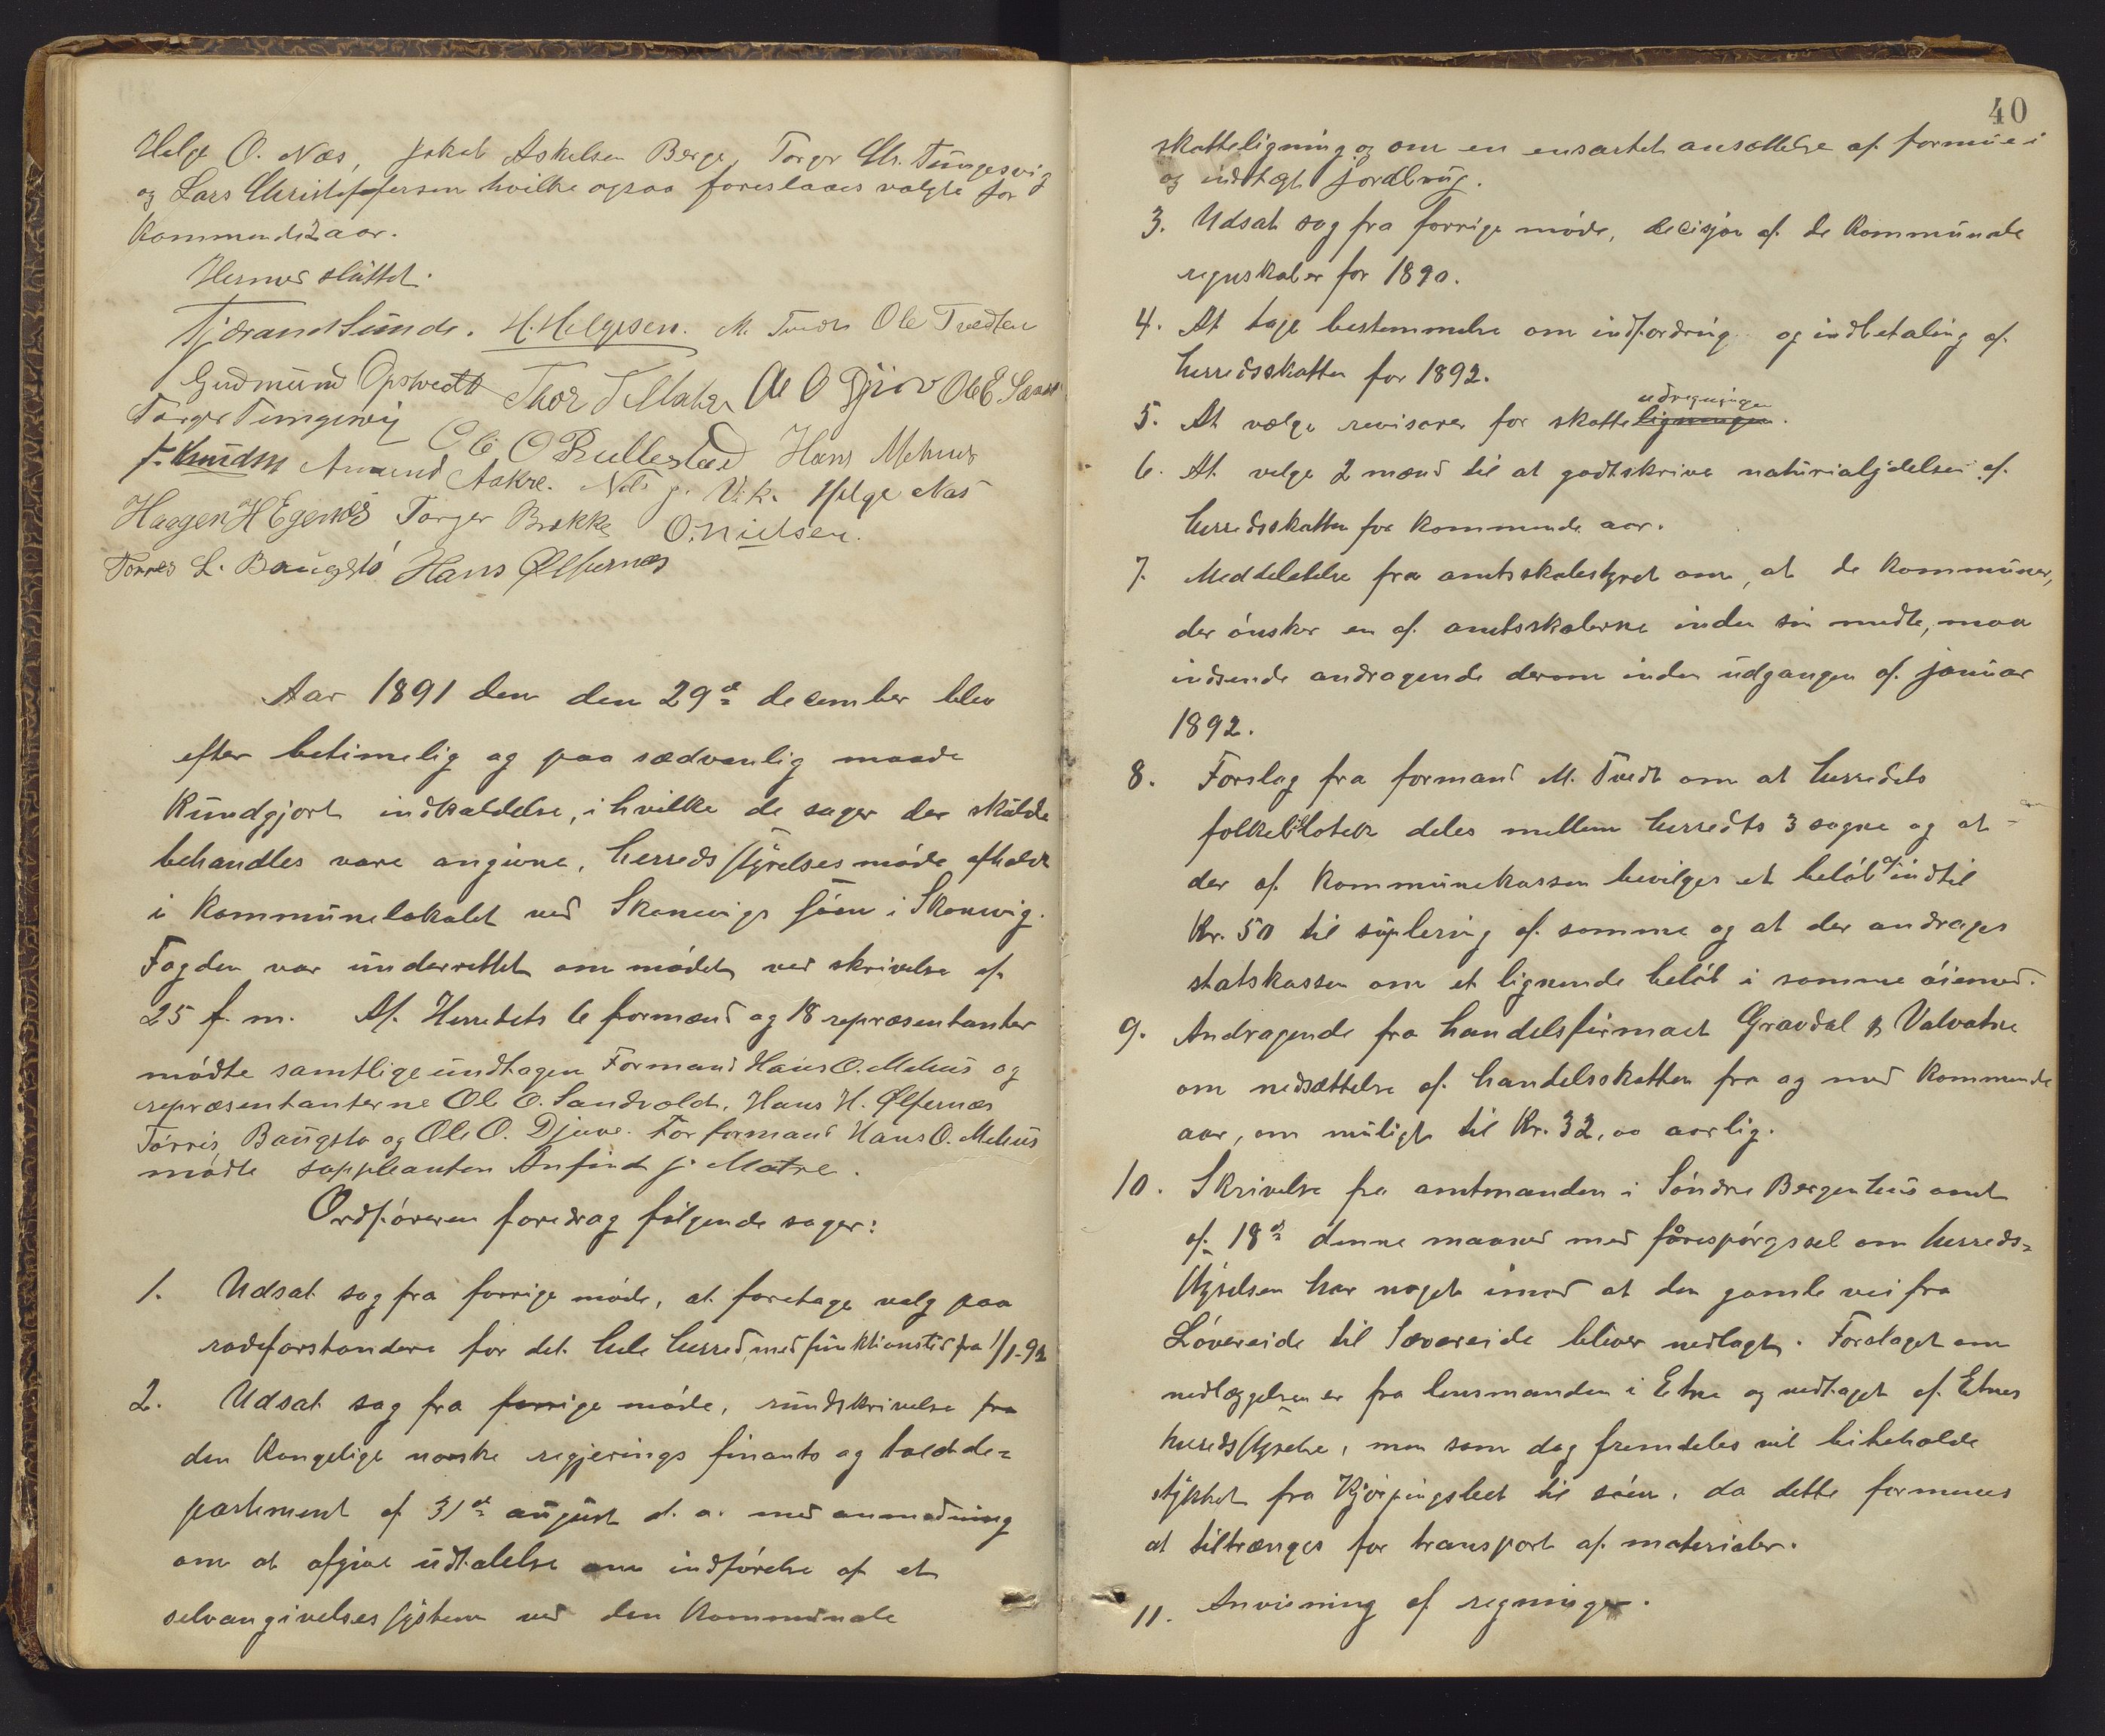 Helge O. Næs, Jakob Askelsen Berge, Torger Chr. Tungesvig
og Lars Christoffersen hvilke ogsaa foreslaaes valgte for
kommende 2 aar.
Hermed sluttet.
Tjærand Sunde. H. Helgesen. M. Tvedt Ole Tvedten
Gudmund Opstvedt Thor T Matre Ole O Djuv Ole E.
Torger Tungesvig
Ole O Rullestad Hans Mehus
F. Knudsen Amund Aakre. Nils J. Vik. Helge Næs
Haagen H Egenes Torger Brekke O. Nielsen.
Torres L. Baugsto Hans Ølfernes
Aar 1891 den den 29de december blev
efter betimelig og paa sædvanlig maade
kundgjort indkaldelse, i hvilke de sager der skulde
behandles vare angivne, herredsstyrelsesmøde afholdt
i kommunelokalet ved Skonevigs søen i Skonevig.
Fogden var underrettet om mødet ved skrivelse af
25 f. m. Af Herredets 6 formænd og 18 repræsentanter
mødte samtlige undtagen Formand Hans O. Mehus og
repræsentanterne Ole O. Sandvold, Hans H. Ølfernes
Tørris Baugsto og Ole O. Djuve. For formand Hans O. Mehus
mødte suppleanten Anfind J. Matre.
Ordføreren foredrog følgende sager:
1. Udsat sag fra forrige møde, at foretage valg paa
rodeforstandere for det hele herred, med funktionstid fra 1/1-92
2. Udsat sag fra forrige møde, rundskrivelse fra
den kongelige norske regjerings finants og toldde=
partement af 31te august d. a. med anmodning
om at afgive udtalelse om indførelse af et
selvangivelsessystem ved den kommunale
40
skatteligning og om en ensartet ansættelse af formue i
og indtægt jordbrug.
3. Udsat sag fra forrige møde, decisjon af de kommunale
regnskaber for 1890.
4. At tage bestemmelse om indfordring og indbetaling af
herredsskatten for 1892.
udregningen
5. At vælge revisorer for skatteligningen.
6. At velge 2 mænd til at godtskrive naturialydelser af
herredsskatten for kommende aar.
7. Meddelelse fra amtsskolestyret om, at de kommuner,
der ønsker en af amtsskolerne inden sin midte, maa
indsende andragende derom inden udgangen af januar
1892.
8. Forslag fra formand M. Tvedt om at herredets
folkebibliotek deles mellem herredts 3 sogne og at
der af kommunekassen bevilges et beløb af indtil
Kr. 50 til suplering af samme og at der andrages
statskassen om et lignende beløb i samme øiemed.
9. Andragende fra handelsfirmaet Gravdal & Valvatne
om nedsættelse af handelsskatten fra og med kommende
aar, om muligt til Kr. 32,00 aarlig.
10. Skrivelse fra amtmanden i Søndre Bergenhus amt
af 18de denne maaned med forespørgssel om herreds=
styrelsen har noget imod at den gamle vei fra
Løvereide til Sævareide bliver nedlagt. Forslaget om
nedlæggelsen er fra lensmanden i Etne og vedtaget af Etnes
heredsstyrelse, men som dog fremdeles vil bibeholde
stykket fra Kjørpingsleet til søen, da dette formenes
at tiltrænges for transport af materialer.
11. Anvisning af regninger.